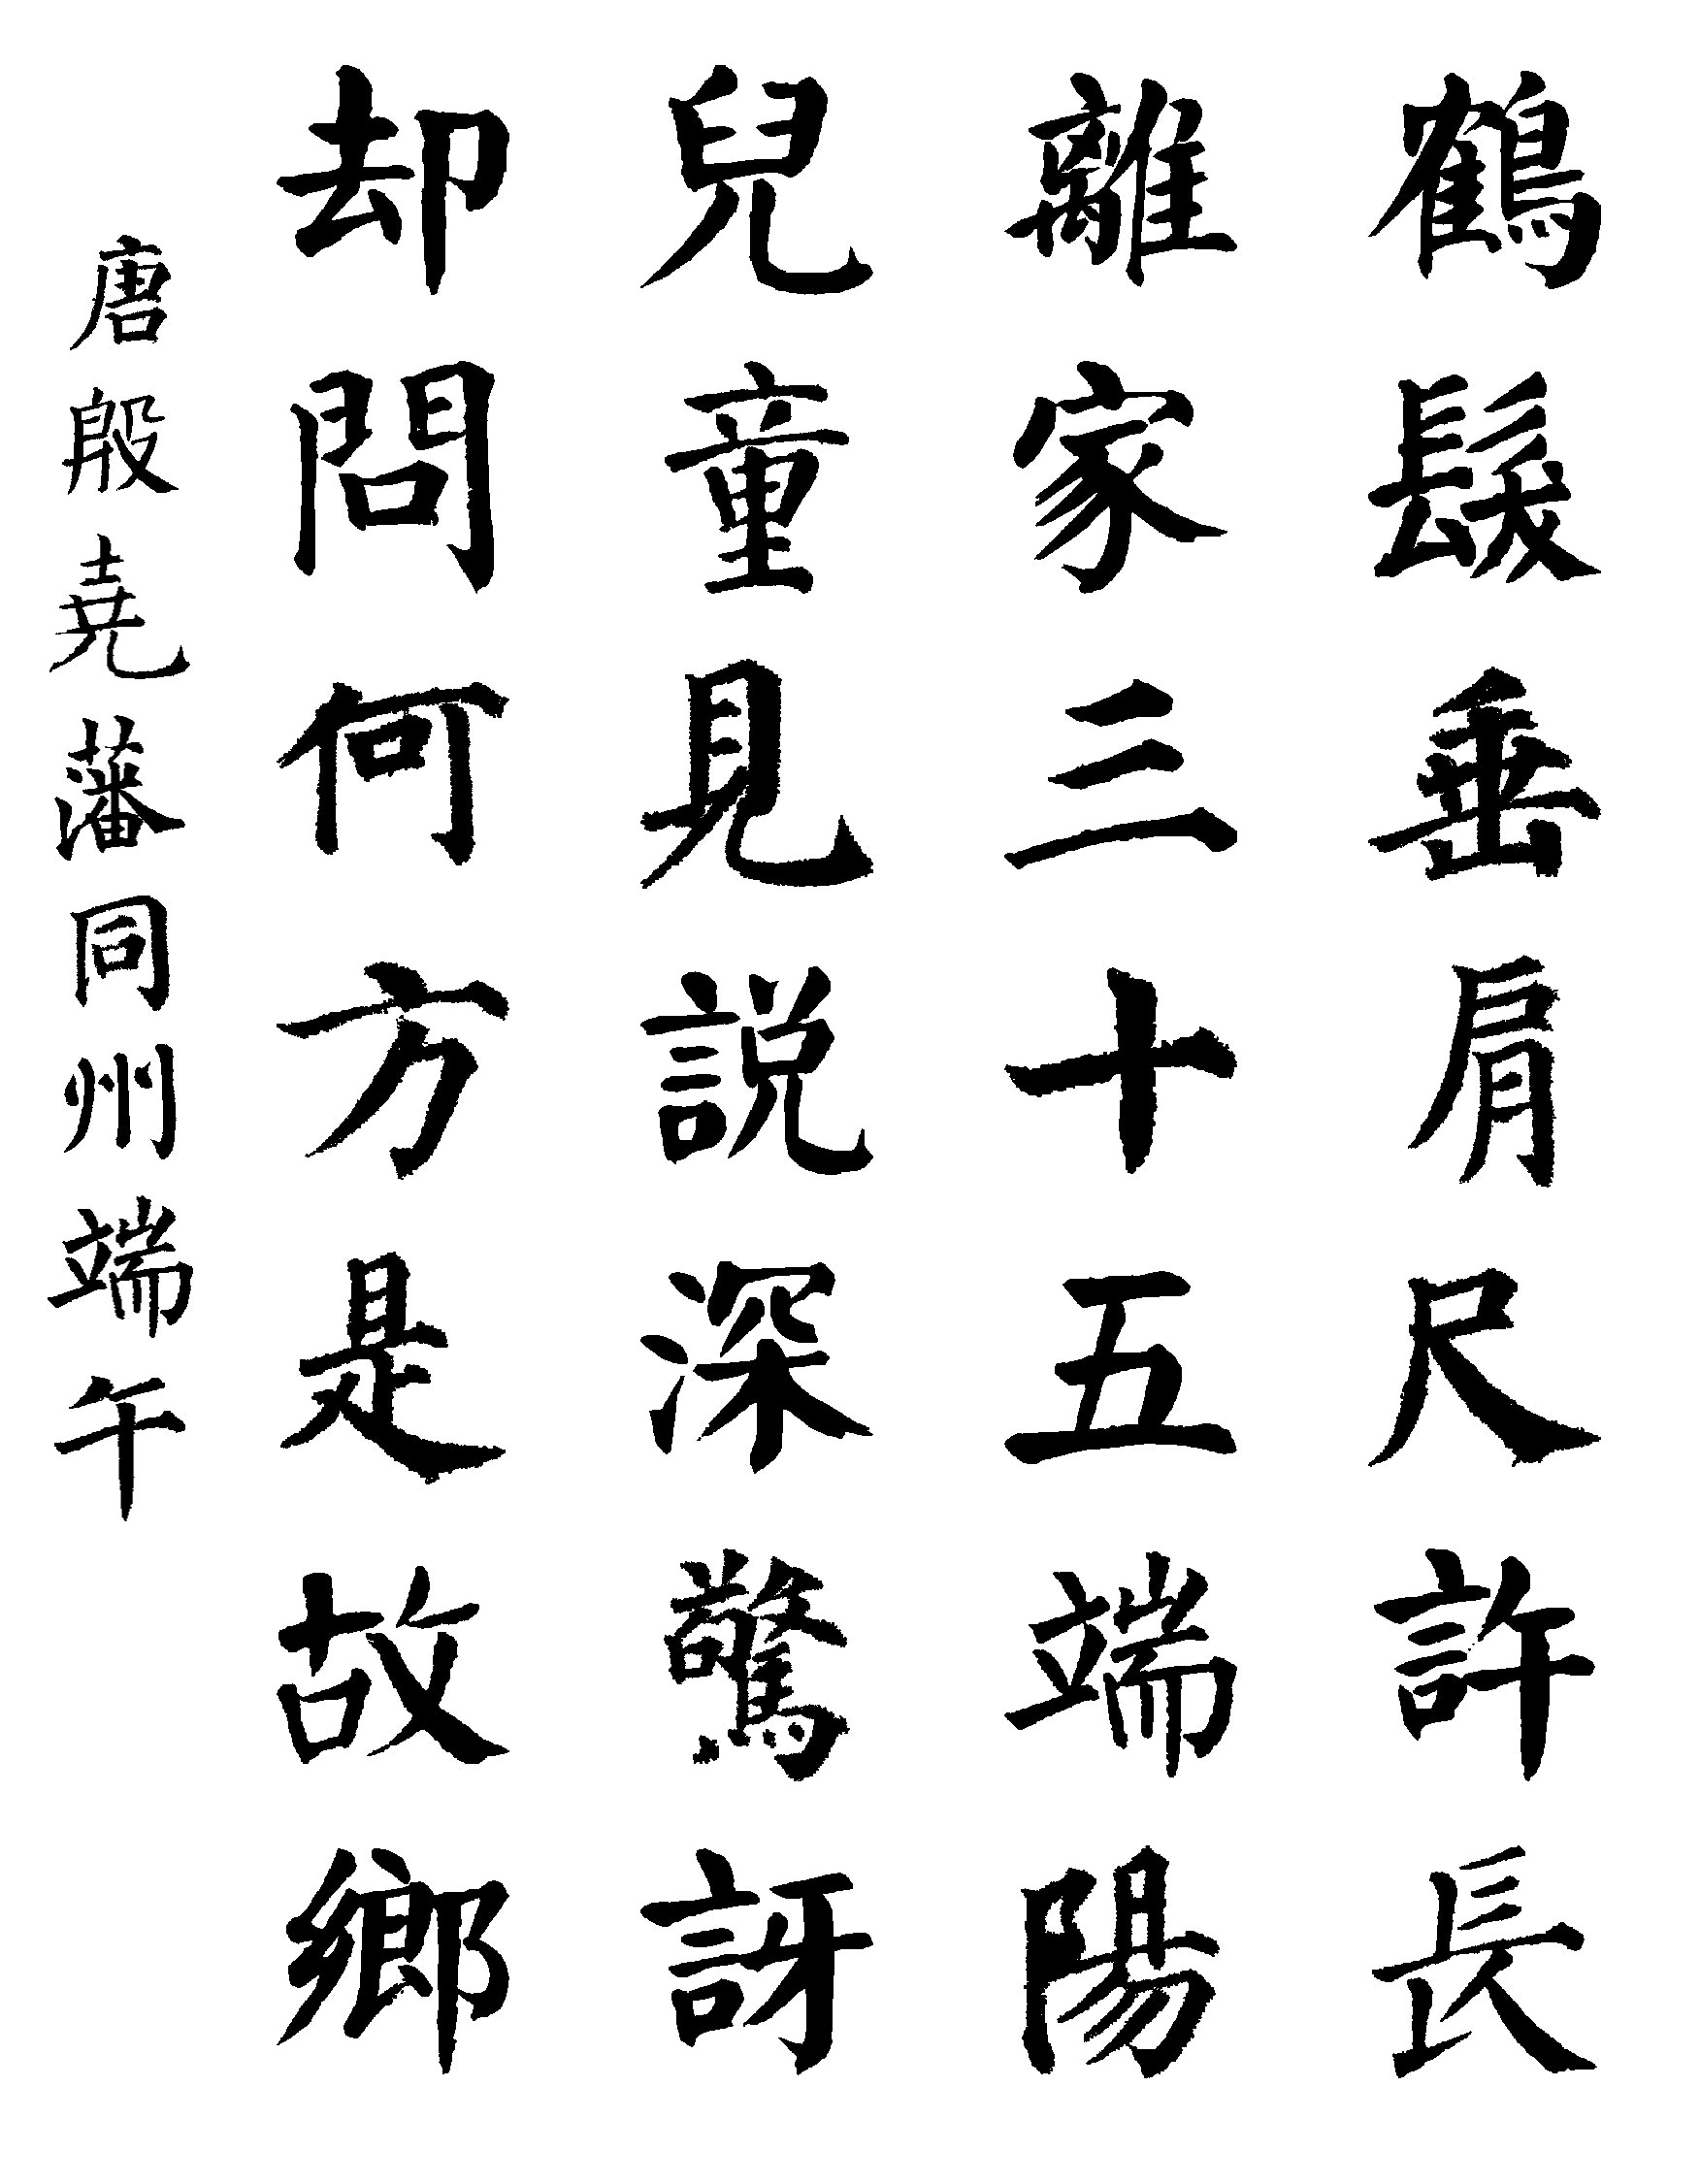 鶴髮垂肩尺許長
離家三十五端陽
兒童見説深驚訝
却問何方是故鄉
唐殷堯藩同州端午